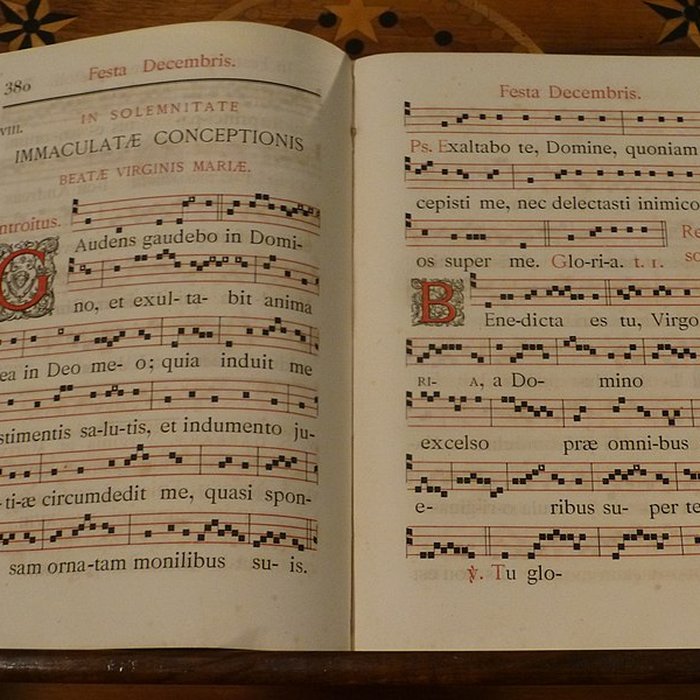 380
Festa Decembris.
VIII.
IN SOLEMNITATE
IMMACULATÆ CONCEPTIONIS
BEATÆ VIRGINIS MARIÆ.
ntroitus.
GAudens gaudebo in Domi-
no, et exul- ta- bit anima
ea in Deo me- o; quia induit me
stimentis sa-lu-tis, et indumento ju-
-ti-æ circumdedit me, quasi spon-
sam orna-tam monilibus su- is.
Festa Decembris.
Ps. Exaltabo te, Domine, quoniam
cepisti me, nec delectasti inimico
os super me. Glo-ri-a. t. 1.
BEne-dicta es tu, Virgo
RI- A, a Do- mino
excelso præ omni-bus
e- ribus su- per te
℣. Tu glo-